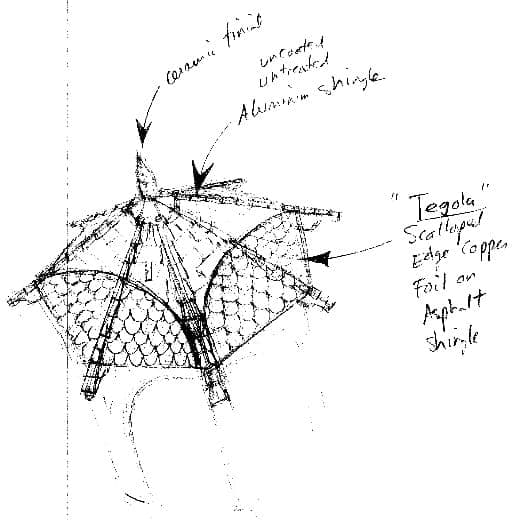 ceramic finial
uncoated
untreated
Aluminium shingle
"Tegola"
Scalloped
Edge Copper
Foil on
Asphalt
Shingle